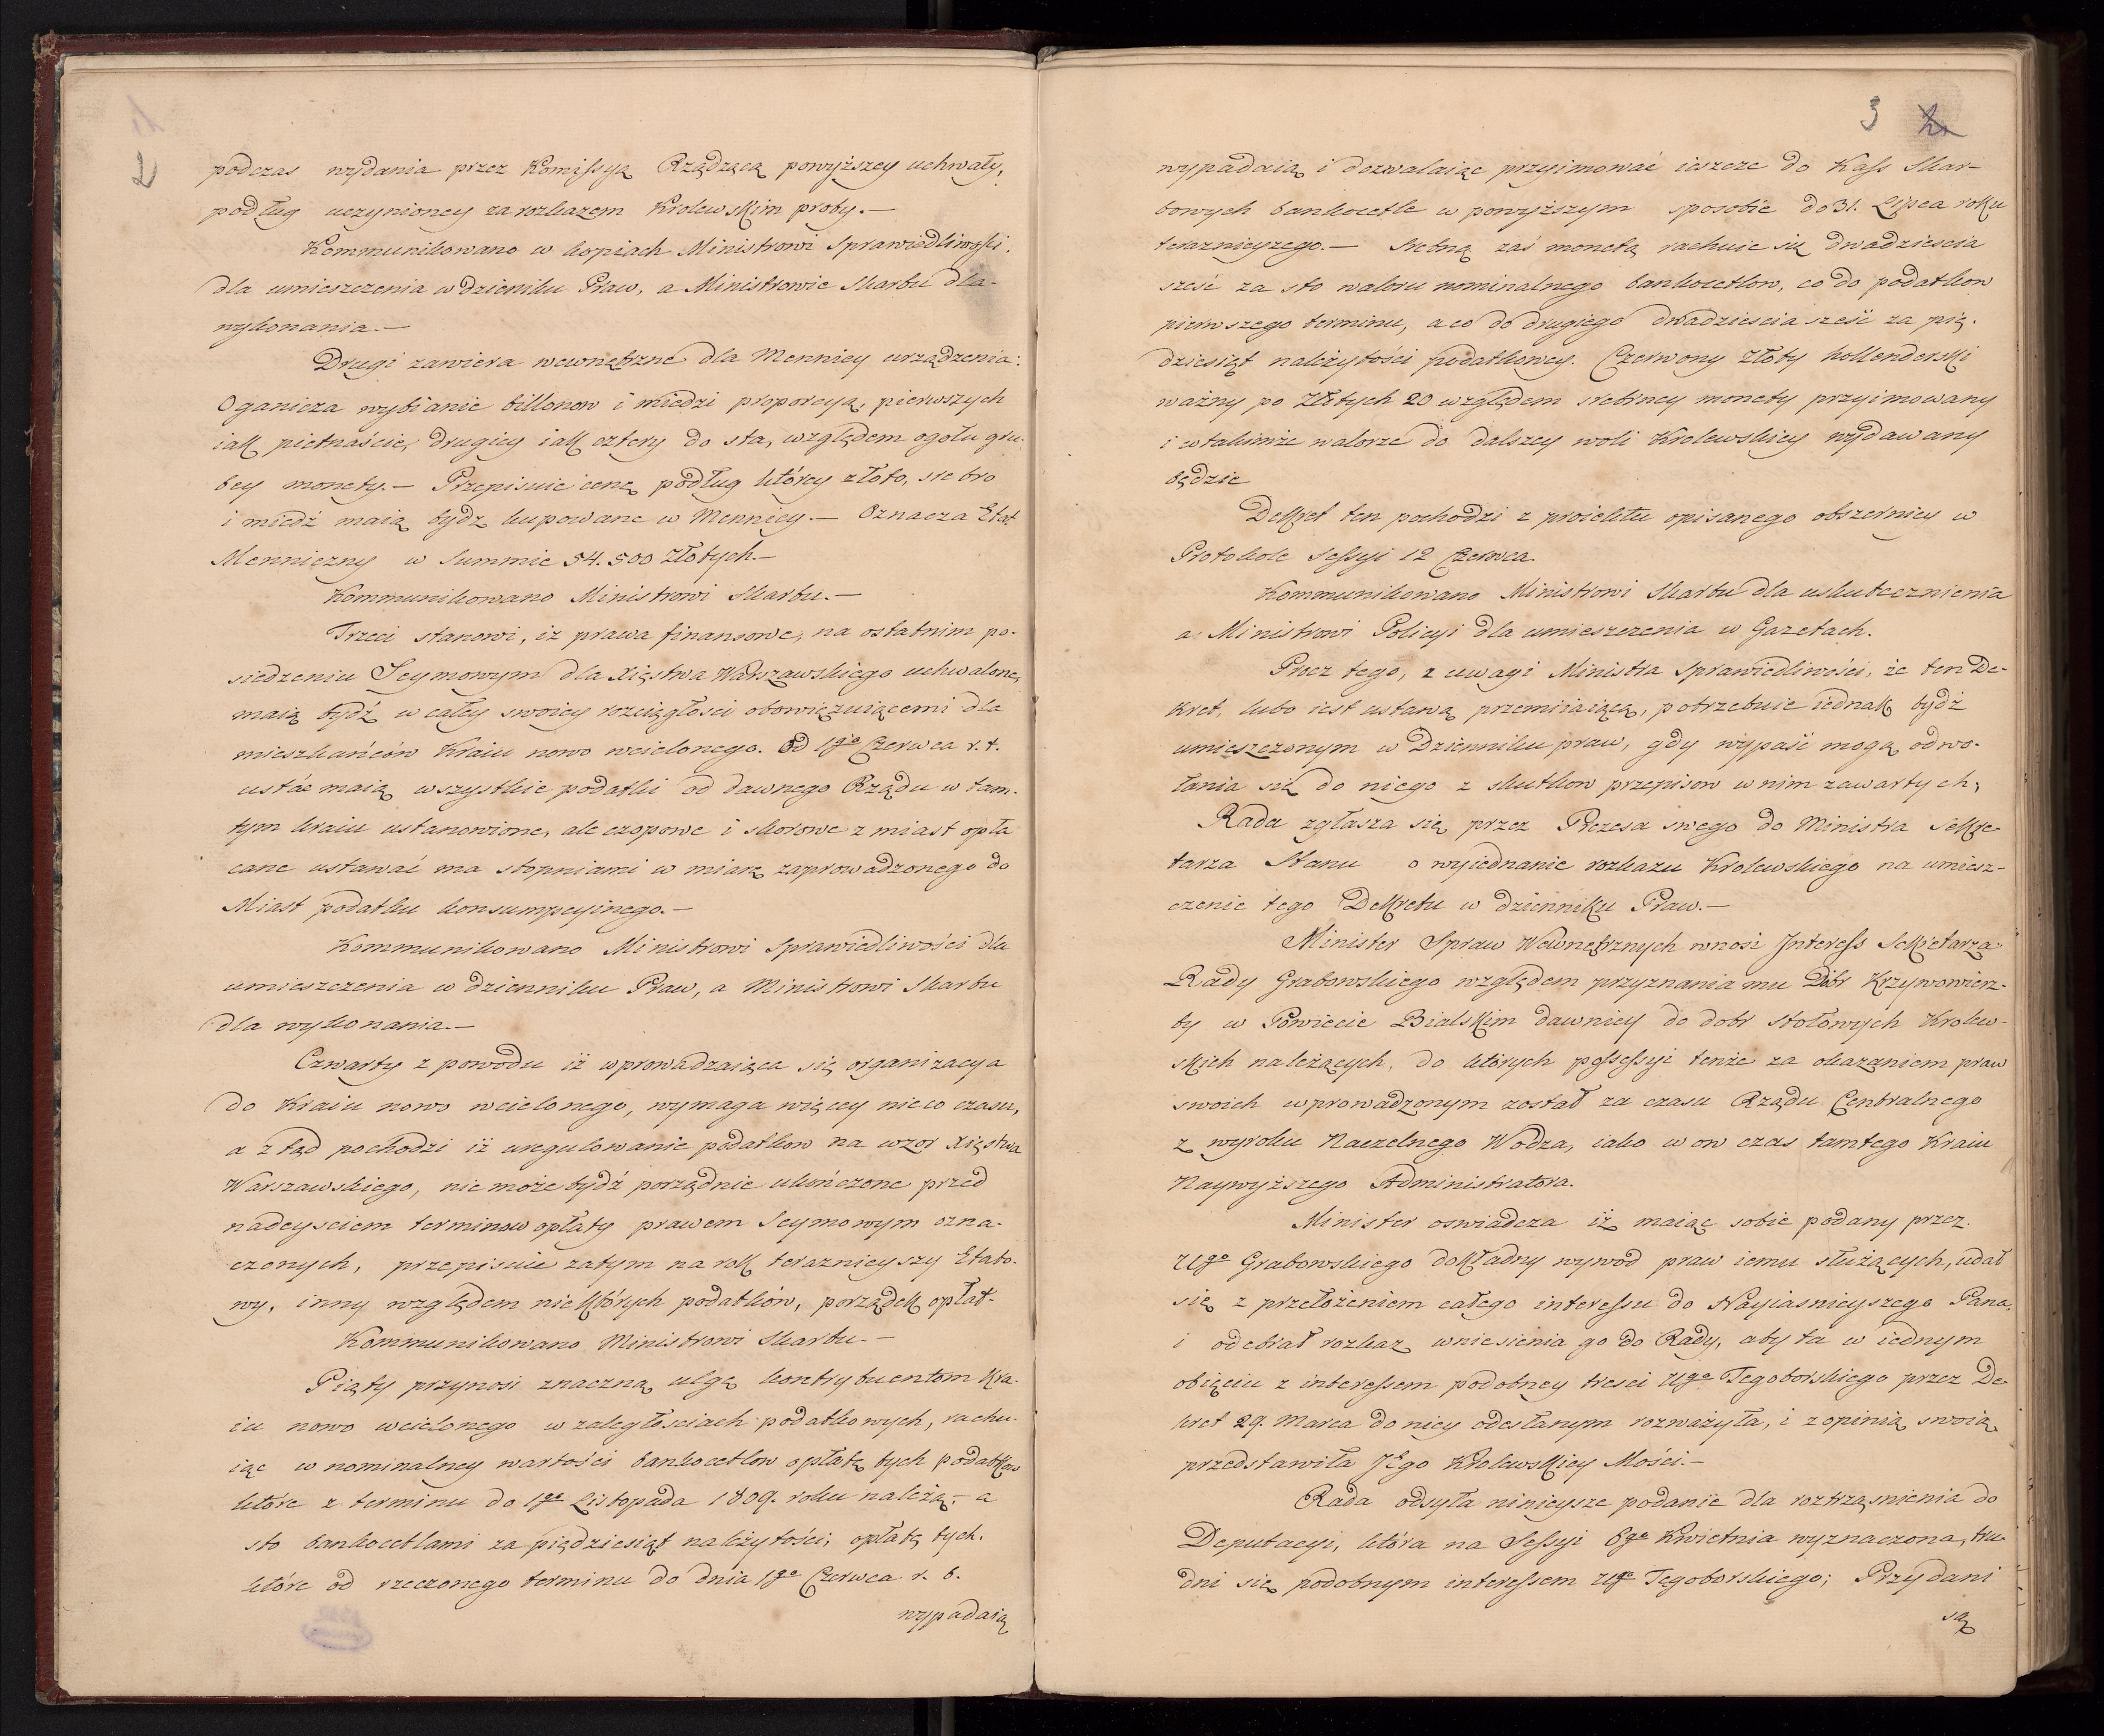 2
podczas wydania przez Komissyą Rządzącą powyższey uchwały,
podług uczynioney za rozkazem Krolewskim proby.—
Kommunikowano w kopiach Ministrowi Sprawiedliwości.
dla umieszczenia w dzieniku Praw, a Ministrowie Skarbu dla-
wykonania.—
Drugi zawiera wewnętrzne dla Mennicy urządzenia:
Oganicza wybiianie billonow i miedzi proporcyą, pierwszych
iak pietnaście, drugiey iak cztery do sta, względem ogołu gru-
bey monety.— Przepisuie cenę podług którey złoto, srebro
i miedź maią bydz kupowane w Mennicy.— Oznacza Etat
Menniczny w Summie 54.500 Złotych.—
Kommunikowano Ministrowi Skarbu.—
Trzeci stanowi, iz prawa finansowe, na ostatnim po-
siedzeniu Seymowym dla Xięstwa Warszawskiego uchwalone,
maią bydź w całey swoiey rozciągłosci obowięzuiącemi dla
mieszkańców Kraiu nowo wcielonego. Od 1go Czerwca r. t.
ustác maią wszystkie podatki od dawnego Rządu w tam-
tym kraiu ustanowione, ale czopowe i skorowe z miast opła
cane ustawać ma stopniami w miarę zaprowadzonego do
Miast podatku konsumpcyinego.—
Kommunikowano Ministrowi Sprawiedliwości dla
umieszczenia w dzienniku Praw, a Ministrowi Skarbu
dla wykonania.—
Czwarty z powodu iż wprowadzaiąca się organizacya
do Kraiu nowo wcielonego, wymaga więcey nieco czasu,
a z tąd pochodzi iż uregulowanie podatkow na wzor Xięstwa
Warszawskiego, nie może bydź porządnie ukończone przed
nadeysciem terminow opłaty prawem Seymowym ozna-
czonych, przepisuie zatym na rok teraznieyszy Etato-
wy, inny względem niektórych podatków, porządek opłat-
Kommunikowano Ministrowi Skarbu.—
Piąty przynosi znaczną ulgę kontrybuentom Kra-
iu nowo wcielonego w zaległosciach podatkowych, rachu-
iąc w nominalney wartości bankocetlow opłatę tych podatkow
które z terminu do 1go Listopada 1809. roku należą;— a
sto bankocetlami za pięćdziesiąt należytości, opłatę tych.
które od rzeczonego terminu do dnia 1go Czerwca r. b.
wypadaią
3
wypadaią i dozwalaiąc przyimować ieszcze do Kass Skar-
bowych bankocetle w powyższym sposobie do 31. Lipca roku
teraznieyszego.— Srebną zaś monetą rachuie się dwadziescia
sześć za sto waloru nominalnego bankocetlow, co do podatkow
pierwszego terminu, a co do drugiego dwadziescia sześć za pię-
dziesiąt należytości podatkowey. Czerwony złoty hollenderski
ważny po Złotych 20 względem srebrney monety przyimowany
i w takimże walorze do dalszey woli Krolewskiey wydawany
będzie
Dekret ten pochodzi z proiektu opisanego obszerniey w
Protokole Sessyi 12 Czerwca
Kommunikowano Ministrowi Skarbu dla uskutecznienia
a Ministrowi Policyi dla umieszczenia w Gazetach.
Procz tego, z uwagi Ministra Sprawiedliwości, że ten De-
kret, lubo iest ustawą przemiiaiącą, potrzebuie iednak bydź
umieszczonym w Dzienniku praw, gdy wypaść mogą odwo-
łania się do niego z skutkow przepisow w nim zawartych,
Rada zgłasza się przez Prezesa swego do Ministra Sekre-
tarza Stanu o wyiednanie rozkazu Krolewskiego na umiesz-
czenie tego Dekretu w dzienniku Praw.—
Minister Spraw Wewnętrznych wnosi Interess Sekretarza
Rady Grabowskiego względem przyznania mu Dóbr Krzywowierz-
by w Powiecie Bialskim dawniey do dobr stołowych Krolew-
skich należących, do których possessyi tenże za okazaniem praw
swoich wprowadzonym został za czasu Rządu Centralnego
z wyroku Naczelnego Wodza, iako w on czas tamtego Kraiu
Naywyższego Administratora.
Minister oswiadcza iż maiąc sobie podany przez
Ugo Grabowskiego dokładny wywod praw iemu służących, udał
się z przełożeniem całego interessu do Nayiasnieyszego Pana,
i odebrał rozkaz wniesienia go do Rady, aby ta w iednym
obięciu z interessem podobney tresci Ugo Tęgoborskiego przez De-
kret 29. Marca do niey odesłanym rozważyła, i z opinią swoią
przedstawiła JEgo Krolewskiey Mości.—
Rada odsyła ninieysze podanie dla roztrząsnienia do
Deputacyi, która na Sessyi 6go Kwietnia wyznaczona, tru-
dni się podobnym interessem Ugo Tęgoborskiego; Przydani
są